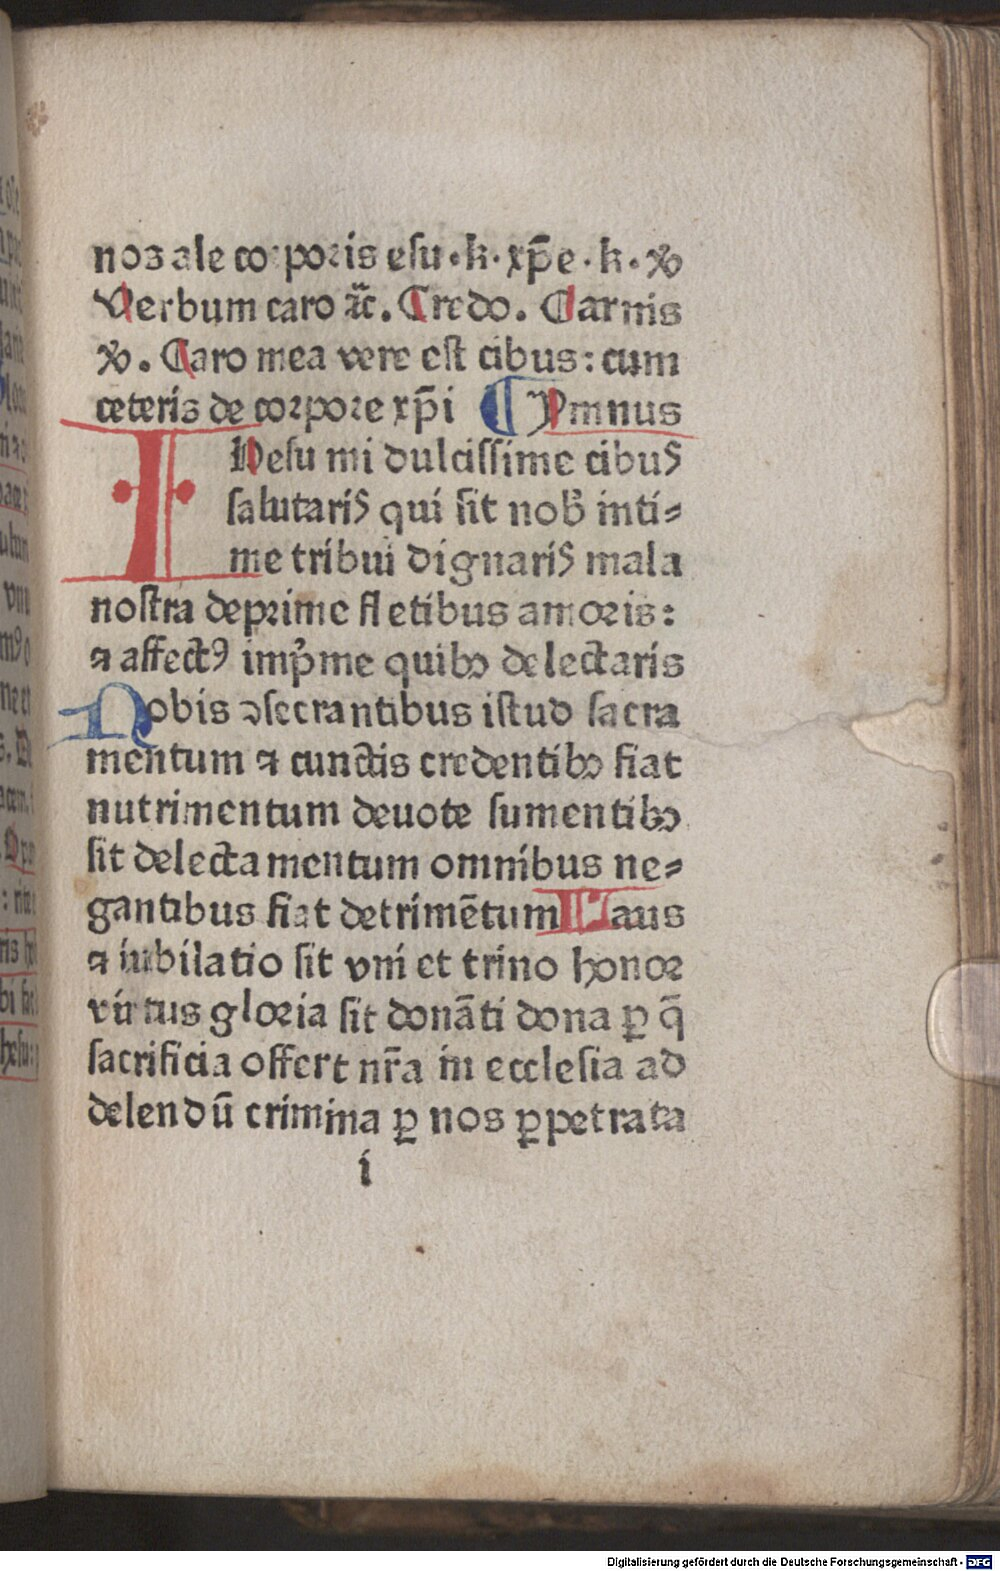 noꝫ ale corporis esu. k. xp̄e. k. ꝟ
Verbum caro ⁊c̄. Credo. Carnis
ꝟ. Caro mea vere est cibus: cum
ceteris de corpore xp̄i ¶ Ymnus
IHesu mi dulcissime cibus
salutaris qui sit nob̕ inti⸗
me tribui dignaris mala
nostra deprime fletibus amoris:
⁊ affectꝰ imp̕me quibꝫ delectaris
Nobis ꝯsecrantibus istud sacra
mentum ⁊ cunctis credentibꝫ fiat
nutrimentum deuote sumentibꝫ
sit delectamentum omnibus ne⸗
gantibus fiat detrimētum Laus
⁊ iubilatio sit vni et trino honor
virtus gloria sit donāti dona ꝑ q̄
sacrificia offert nr̄a in ecclesia ad
delendū crimina ꝑ nos ꝑpetrata
i
Digitalisierung gefördert durch die Deutsche Forschungsgemeinschaft - DFG